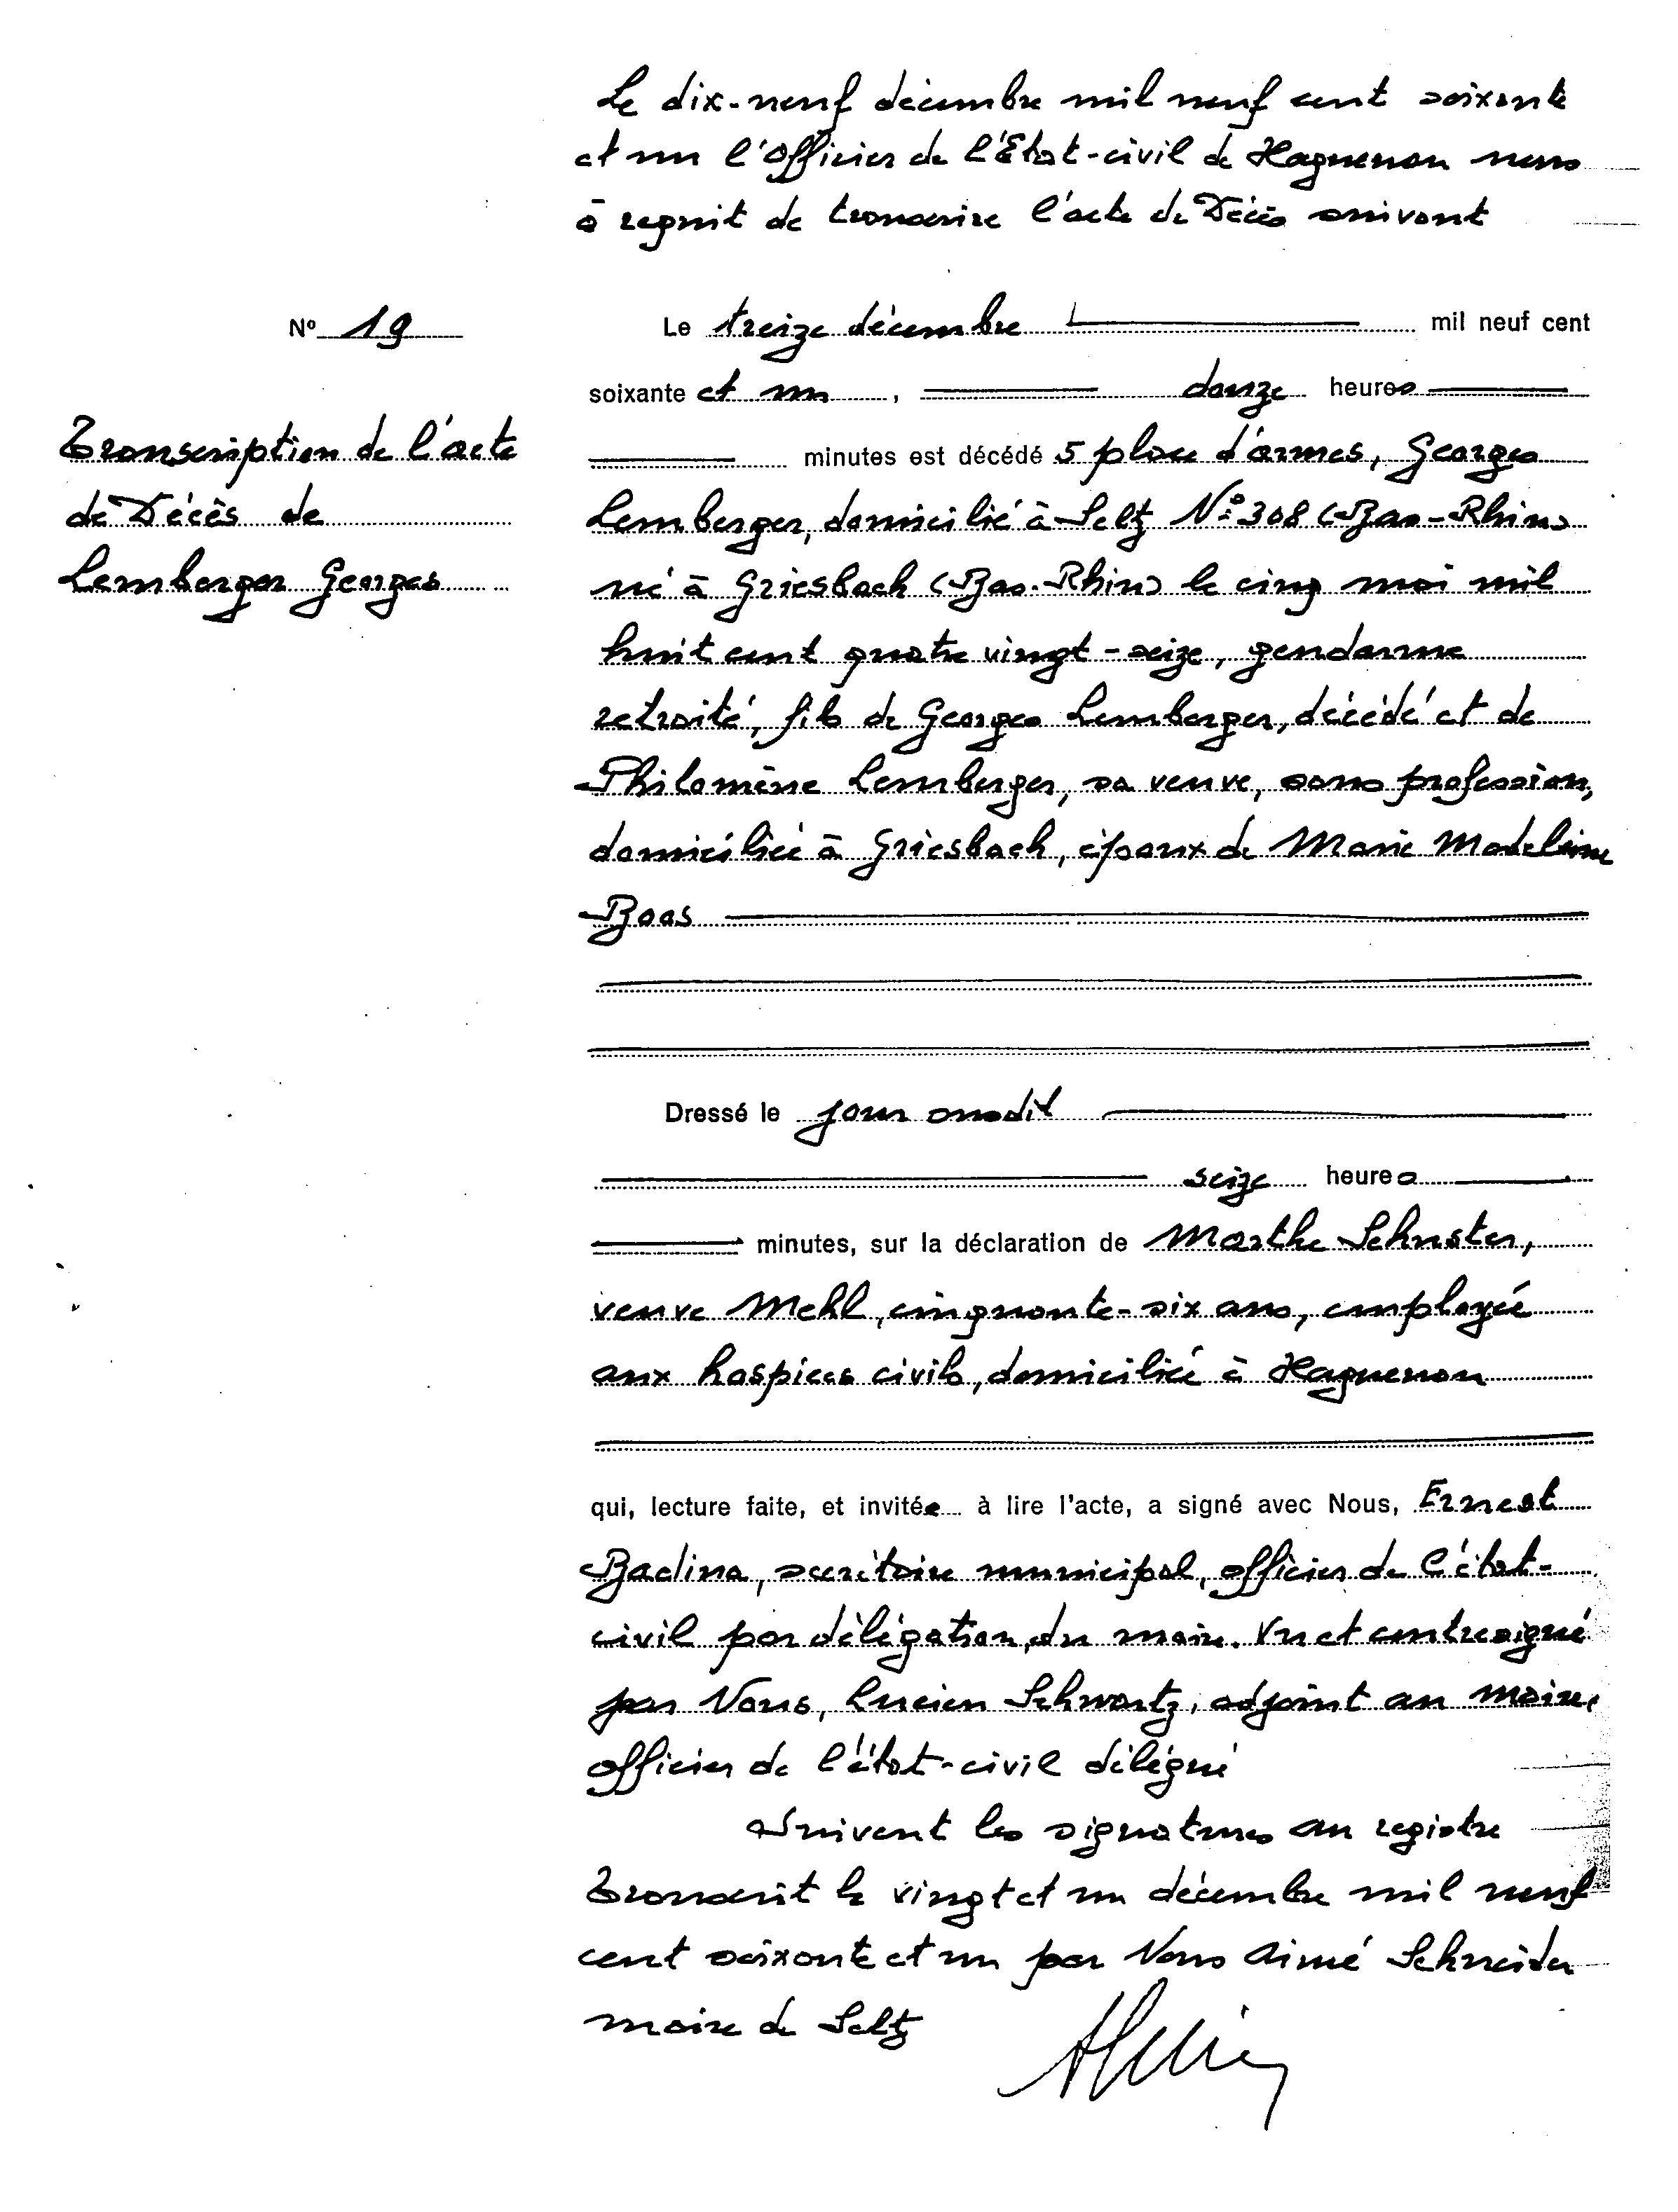 Le dix-neuf décembre mil neuf cent soixante
et un l'Officier de l'Etat-civil de Haguenau nous
a requit de transcrire l'acte de Décès suivant
N° 19
Le treize décembre mil neuf cent
soixante et un, douze heures
minutes est décédé 5 place d'armes, Georges
Transcription de l'acte
de Décès de
Lemberger Georges
Lemberger, domicilié à Seltz N° 308 (Bas-Rhin)
né à Griesbach (Bas-Rhin) le cinq mai mil
huit cent quatre vingt-seize, gendarme
retraité, fils de Georges Lemberger, décédé et de
Philomène Lemberger, sa veuve, sans profession,
domiciliée à Griesbach, époux de Marie Madeleine
Boos
Dressé le jour susdit
seize heures
minutes, sur la déclaration de Marthe Schuster,
veuve Mehl, cinquante-six ans, employée
aux hospices civils, domiciliée à Haguenau
qui, lecture faite, et invitée à lire l'acte, a signé avec Nous, Ernest
Badina, secrétaire municipal, officier de l'état-
civil par délégation du maire. Vu et contresigné
par Nous, Lucien Schwartz, adjoint au maire,
officier de l'état-civil délégué
Suivent les signatures au registre
Transcrit le vingt et un décembre mil neuf
cent soixante et un par Nous Aimé Schneider
maire de Seltz